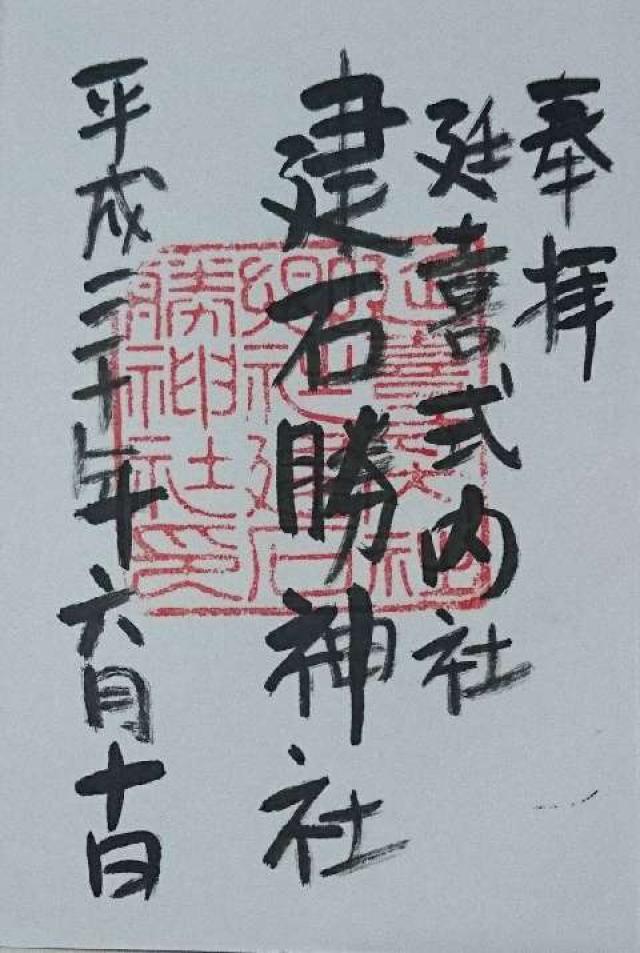 奉拝
延喜式内社
建石勝神社
平成三十年六月十日
勝神社印